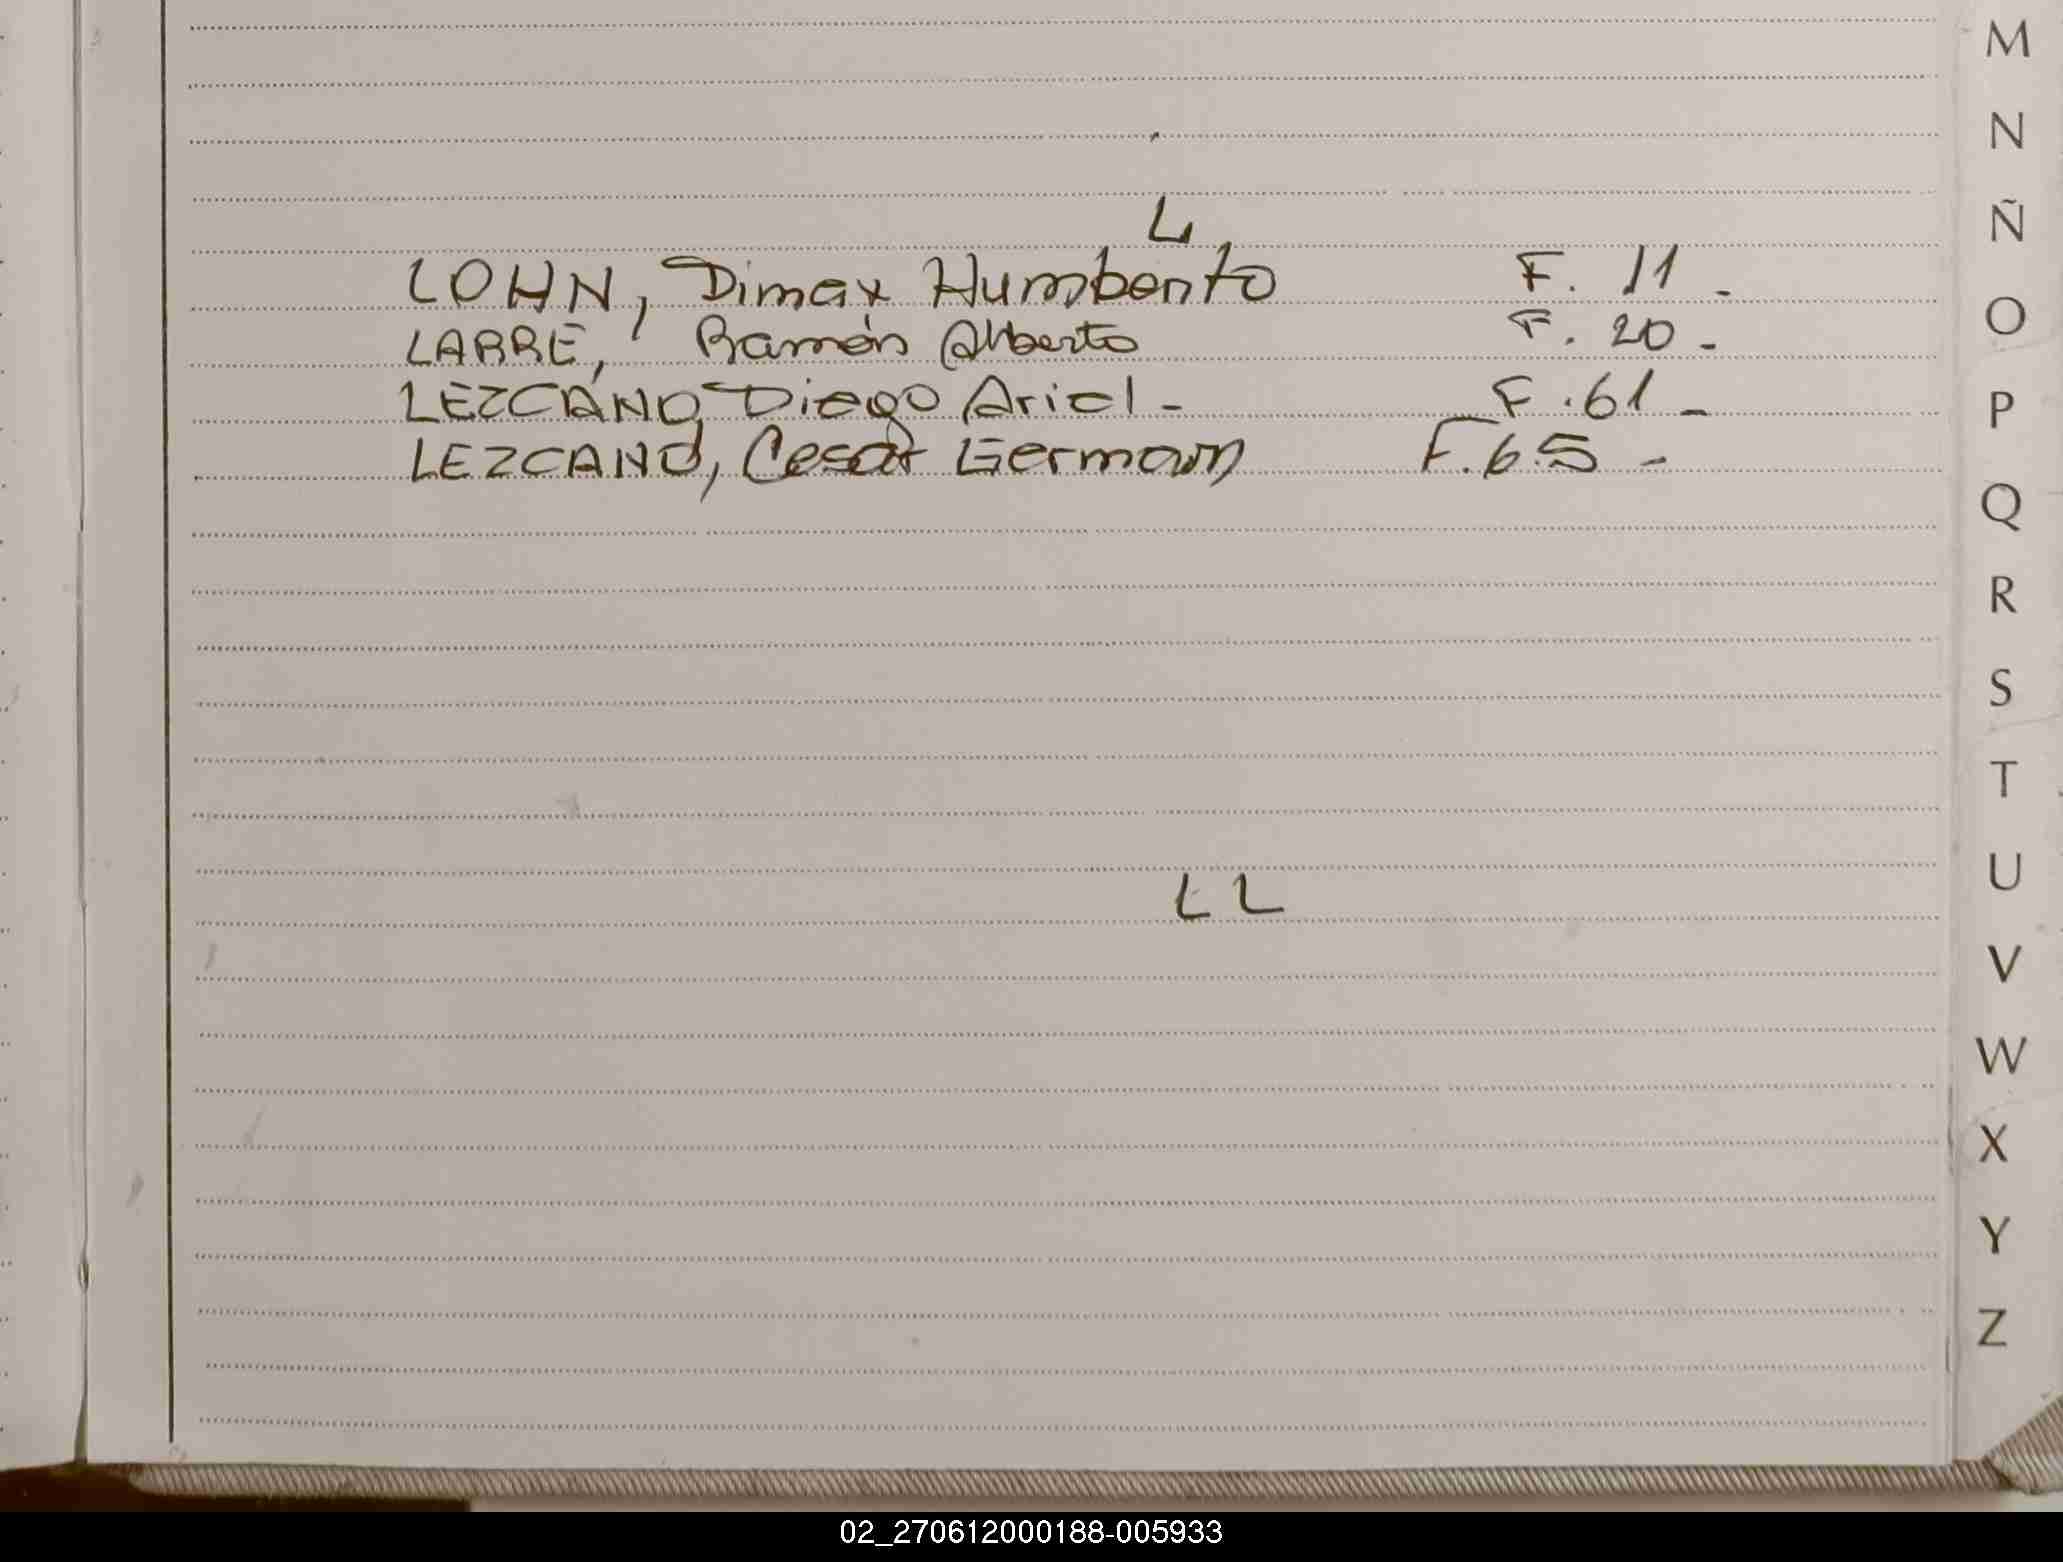 L
LOHN, Dimax Humberto F. 11 -
LARRE, Ramón Alberto F. 20 -
LEZCANO, Diego Ariel - F. 61 -
LEZCANO, Cesar German F. 65 -
LL
M
N
Ñ
O
P
Q
R
S
T
U
V
W
X
Y
Z
02_270612000188-005933